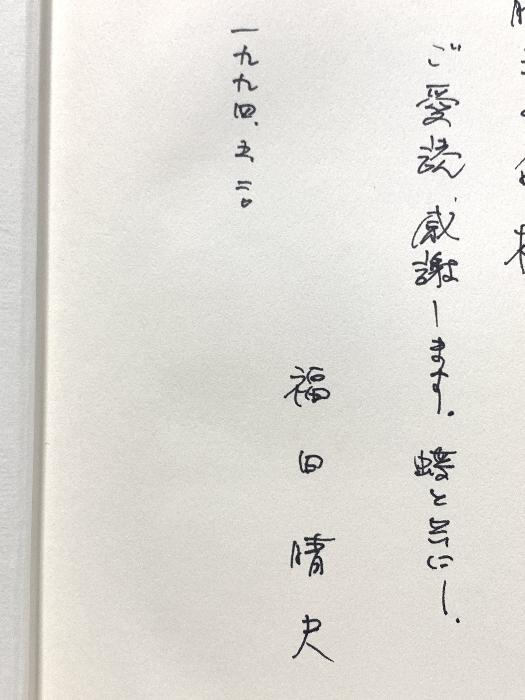 ご愛読感謝します。蝶と共に一.
福田晴夫
一九九四、五、二〇